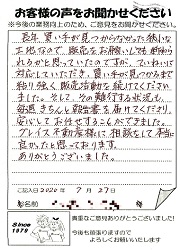 お客様の声をお聞かせください
※今後の業務向上のため、ご意見をお聞かせください。
長年、買い手が見つからなかった狭い
土地なので、販売をお願いしても断わら
れるかと思っていたのですが、ていねいに
対応していただき、買い手が見つかるまで
粘り強く、販売活動を続けてください
ました。そして、その進行する状況も、
毎週きちんと報告書を届けてくださり
安心してお任せすることができました。
グレイス不動産様に相談して本当に
良かったと思っております。
ありがとうございました。
ご記入日 2020年 7月 27日
お名前
Since
1979
貴重なご意見ありがとうございました!
今後も頑張りますので
よろしくお願いいたします